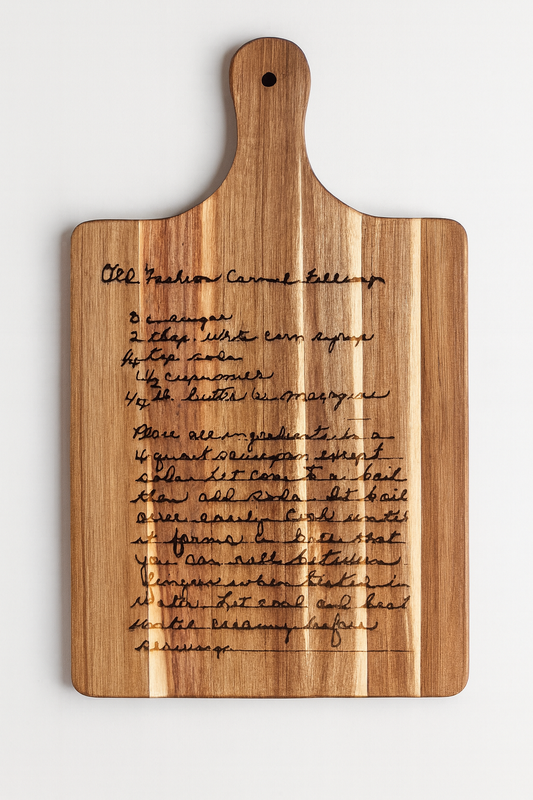 Old Fashion Carmel Filling
3 c sugar
2 tbsp. white corn syrup
1/4 tsp soda
1 1/2 cups
1/4 lb. butter or margarine
Place all ingredients in a
4 quart saucepan except
soda. Let come to a boil
then add soda. Let boil
over Cook until
it forms a that
you can roll between
fingers when tested in
water. Let cool and beat
until creamy before